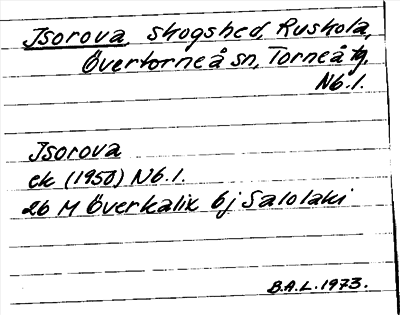 Isorova, skogshed, Ruskola,
Övertorneå sn, Torneå tg,
Nb. l.
Isorova
ek (1950) Nb. l.
26 M Överkalix bj Salolaki
B.A.L. 1973.